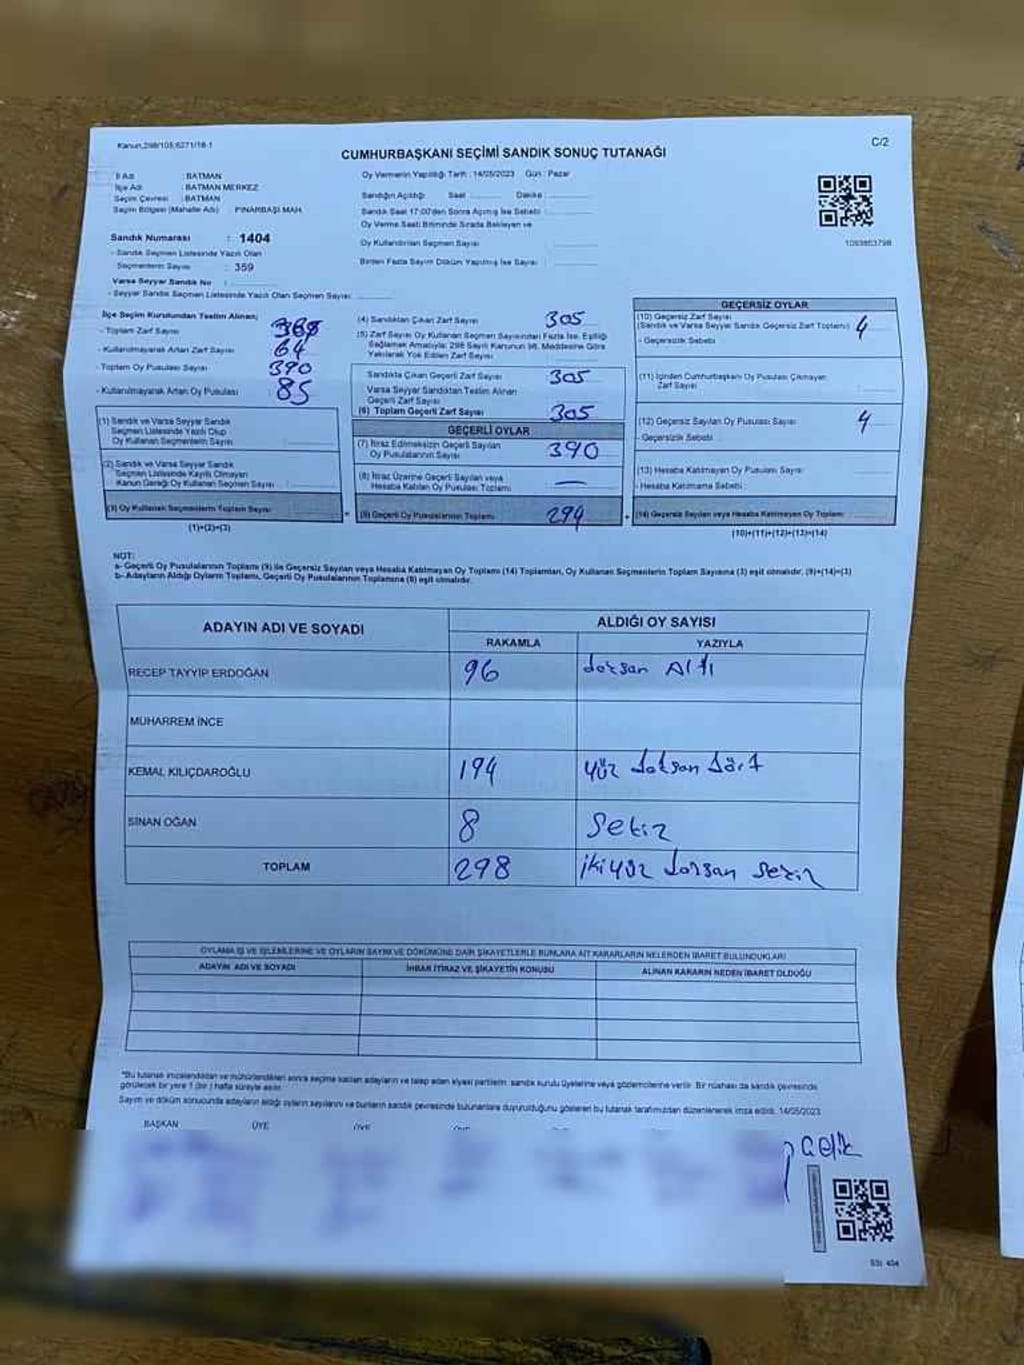 Kanun,298/105;6271/18-1
C/2
CUMHURBAŞKANI SEÇİMİ SANDIK SONUÇ TUTANAĞI
İl Adı : BATMAN
İlçe Adı : BATMAN MERKEZ
Seçim Çevresi : BATMAN
Seçim Bölgesi (Mahalle Adı) PINARBAŞI MAH.
Sandık Numarası : 1404
- Sandık Seçmen Listesinde Yazılı Olan
Seçmenlerin Sayısı : 359
Varsa Seyyar Sandık No :
- Seyyar Sandık Seçmen Listesinde Yazılı Olan Seçmen Sayısı
Oy Vermenin Yapıldığı Tarih : 14/05/2023 Gün : Pazar
Sandığın Açıldığı Saat Dakika
Sandık Saat 17:00'den Sonra Açılmış İse Sebebi
Oy Verme Saati Bitiminde Sırada Bekleyen ve
Oy Kullandırılan Seçmen Sayısı
Birden Fazla Sayım Döküm Yapılmış İse Sayısı
1093803798
İlçe Seçim Kurulundan Teslim Alınan;
- Toplam Zarf Sayısı
- Kullanılmayarak Artan Zarf Sayısı 64
- Toplam Oy Pusulası Sayısı 390
- Kullanılmayarak Artan Oy Pusulası 85
(1) Sandık ve Varsa Seyyar Sandık
Seçmen Listesinde Yazılı Olup
Oy Kullanan Seçmenlerin Sayısı
(2) Sandık ve Varsa Seyyar Sandık
Seçmen Listesinde Kayıtlı Olmayan
Kanun Gereği Oy Kullanan Seçmen Sayısı
(3) Oy Kullanan Seçmenlerin Toplam Sayısı
(1)+(2)=(3)
(4) Sandıktan Çıkan Zarf Sayısı 305
(5) Zarf Sayısı Oy Kullanan Seçmen Sayısından Fazla İse, Eşitliği
Sağlamak Amacıyla; 298 Sayılı Kanunun 98. Maddesine Göre
Yakılarak Yok Edilen Zarf Sayısı
Sandıkta Çıkan Geçerli Zarf Sayısı 305
Varsa Seyyar Sandıktan Teslim Alınan
Geçerli Zarf Sayısı
(6) Toplam Geçerli Zarf Sayısı 305
GEÇERLİ OYLAR
(7) İtiraz Edilmeksizin Geçerli Sayılan
Oy Pusulalarının Sayısı 390
(8) İtiraz Üzerine Geçerli Sayılan veya
Hesaba Katılan Oy Pusulası Toplamı —
(9) Geçerli Oy Pusulalarının Toplamı 294
GEÇERSİZ OYLAR
(10) Geçersiz Zarf Sayısı
(Sandık ve Varsa Seyyar Sandık Geçersiz Zarf Toplamı) 4
- Geçersizlik Sebebi
(11) İçinden Cumhurbaşkanı Oy Pusulası Çıkmayan
Zarf Sayısı
(12) Geçersiz Sayılan Oy Pusulası Sayısı 4
- Geçersizlik Sebebi
(13) Hesaba Katılmayan Oy Pusulası Sayısı
- Hesaba Katılmama Sebebi
(14) Geçersiz Sayılan veya Hesaba Katılmayan Oy Toplamı
(10)+(11)+(12)+(13)=(14)
NOT:
a- Geçerli Oy Pusulalarının Toplamı (9) ile Geçersiz Sayılan veya Hesaba Katılmayan Oy Toplamı (14) Toplamları, Oy Kullanan Seçmenlerin Toplam Sayısına (3) eşit olmalıdır. (9)+(14)=(3)
b- Adayların Aldığı Oyların Toplamı, Geçerli Oy Pusulalarının Toplamına (9) eşit olmalıdır.
ADAYIN ADI VE SOYADI ALDIĞI OY SAYISI
RAKAMLA YAZIYLA
RECEP TAYYİP ERDOĞAN 96 doksan Altı
MUHARREM İNCE
KEMAL KILIÇDAROĞLU 194 yüz doksan dört
SİNAN OĞAN 8 Sekiz
TOPLAM 298 ikiyüz doksan sekiz
OYLAMA İŞ VE İŞLEMLERİNE VE OYLARIN SAYIM VE DÖKÜMÜNE DAİR ŞİKAYETLERLE BUNLARA AİT KARARLARIN NELERDEN İBARET BULUNDUKLARI
ADAYIN ADI VE SOYADI İHBAR İTİRAZ VE ŞİKAYETİN KONUSU ALINAN KARARIN NEDEN İBARET OLDUĞU
*Bu tutanak imzalandıktan ve mühürlendikten sonra seçime katılan adayların ve talep eden siyasi partilerin sandık kurulu üyelerine veya gözlemcilerine verilir. Bir nüshası da sandık çevresinde
görülecek bir yere 1 (bir) hafta süreyle asılır.
Sayım ve döküm sonucunda adayların aldığı oyların sayılarını ve bunların sandık çevresinde bulunanlara duyurulduğunu gösteren bu tutanak tarafımızdan düzenlenerek imza edildi. 14/05/2023
BAŞKAN ÜYE ÜYE ÜYE
çelik